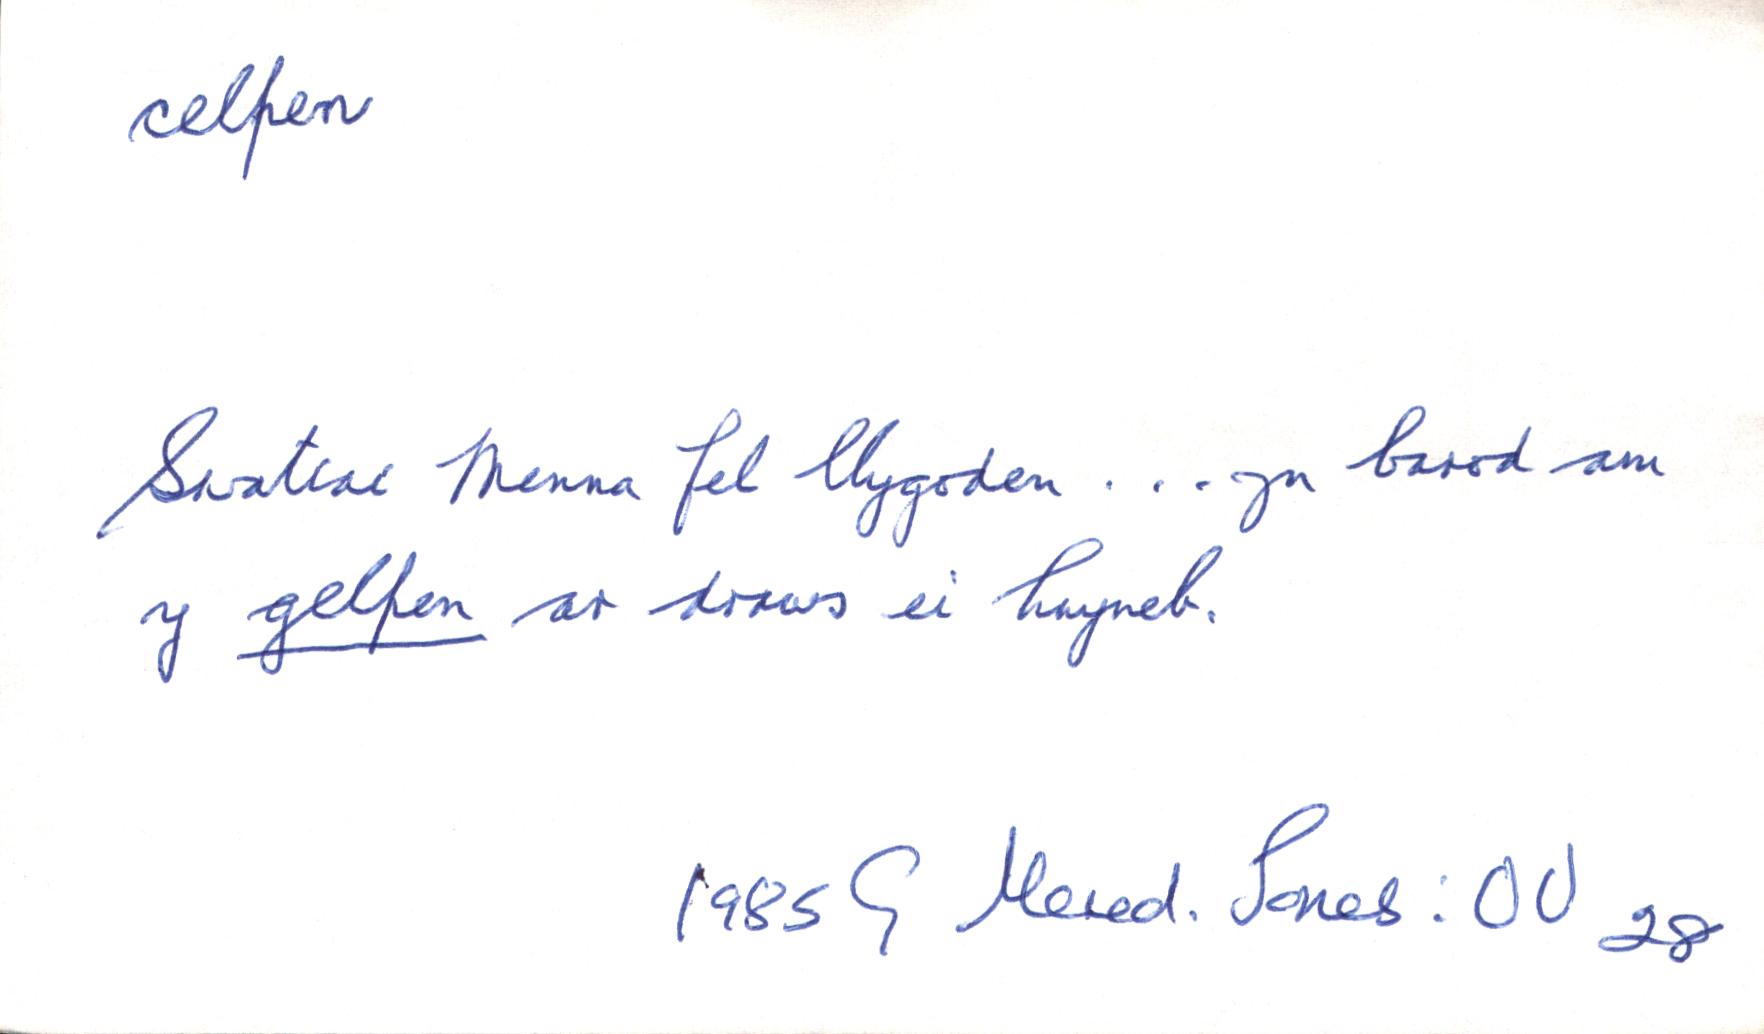 celpen
Swatiai Menna fel llygoden . . . yn barod am
y gelpen ar draws ei hwyneb.
1985 G Mered. Jones: OU 28